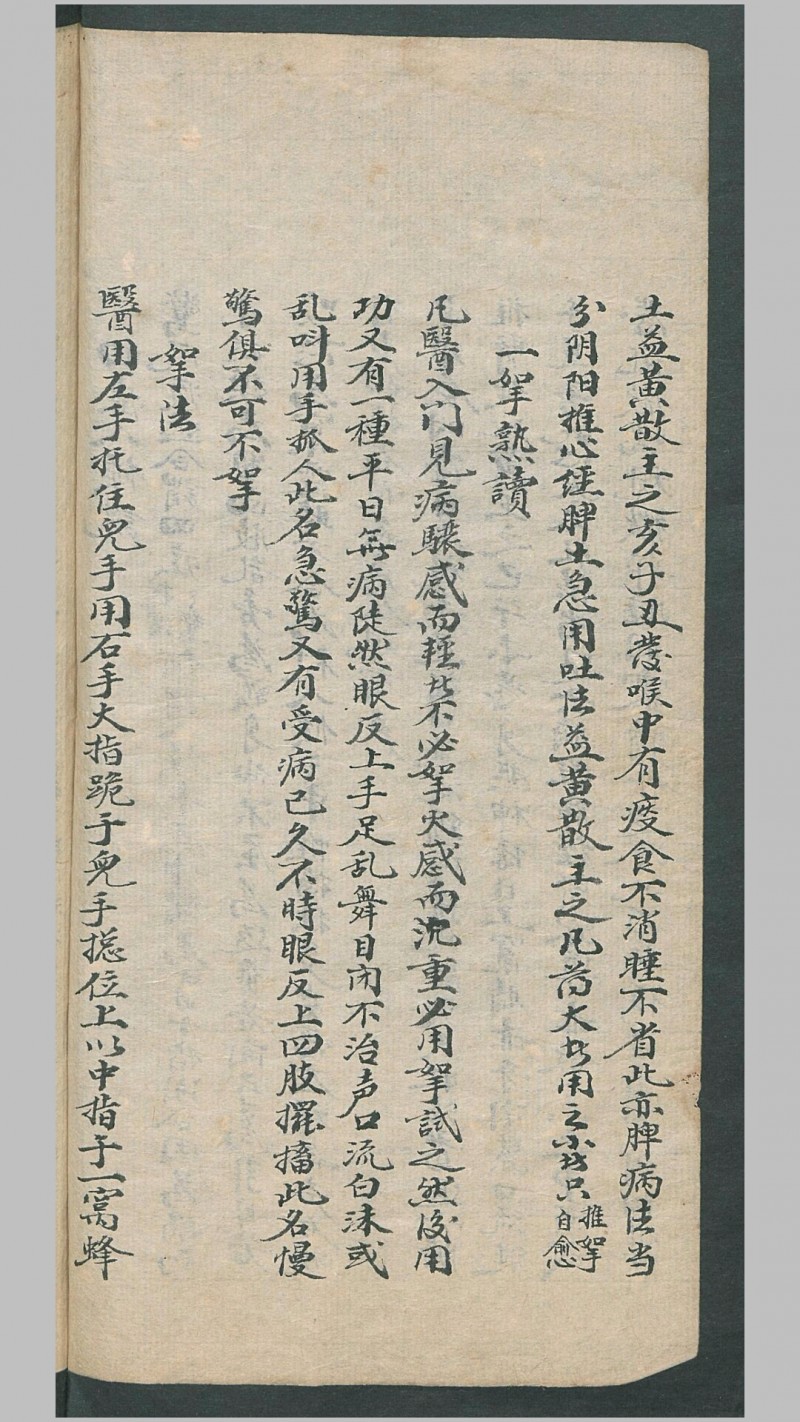 土益黄散主之亥子丑發喉中有痰食不消睡不省此亦脾病法当
分阴阳推心經脾土急用吐法益黄散主之凡蒡大者用之小者只推拏自愈
一拏熟讀
凡醫入门見病驟感而輕者不必拏火感而沉重必用拏試之然後用
功又有一種平日無病陡然眼反上手足乱舞目闭不治声口流白沫或
乱呌用手抓人此名急驚又有受病已久不時眼反上四肢擺搐此名慢
驚俱不可不拏
拏法
醫用左手托住兒手用右手大指跪于兒手總位上以中指于一窩蜂